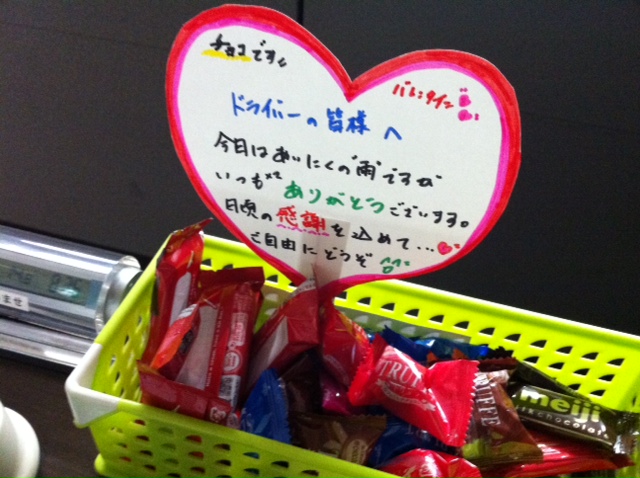 チョコです。
バレンタイン
ドライバーの皆様へ
今日はあいにくの雨ですが
いつも ありがとうございます。
日頃の感謝を込めて...
ご自由にどうぞ
ませ
TRUF
meiji
milk chocolate